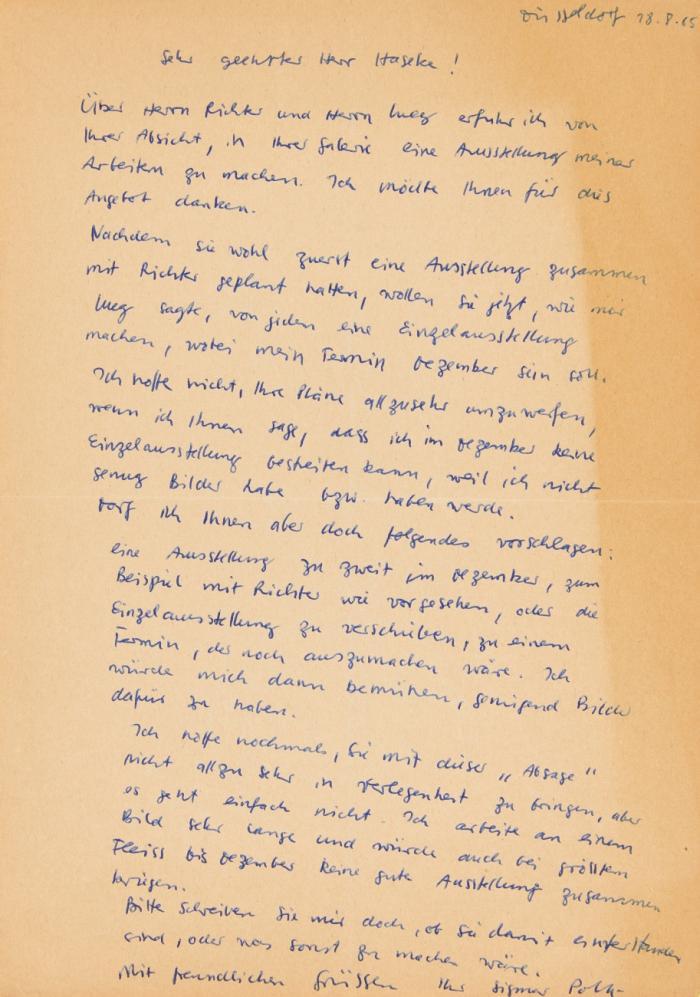 Düsseldorf 18.8.65
Sehr geehrter Herr Haseke!
Über Herrn Richter und Herrn Lueg erfuhr ich von
Ihrer Absicht, in Ihrer Galerie eine Ausstellung meiner
Arbeiten zu machen. Ich möchte Ihnen für dies
Angebot danken.
Nachdem sie wohl zuerst eine Ausstellung zusammen
mit Richter geplant hatten, wollen Sie jetzt, wie mir
Lueg sagte, von jedem eine Einzelausstellung
machen, wobei mein Termin Dezember sein soll.
Ich hoffe nicht, Ihre Pläne allzusehr umzuwerfen,
wenn ich Ihnen sage, dass ich im Dezember keine
Einzelausstellung bestreiten kann, weil ich nicht
genug Bilder habe bzw. haben werde.
Darf ich Ihnen aber doch folgendes vorschlagen:
eine Ausstellung zu zweit im Dezember, zum
Beispiel mit Richter wie vorgesehen, oder die
Einzelausstellung zu verschieben, zu einem
Termin, der noch auszumachen wäre. Ich
würde mich dann bemühen, genügend Bilder
dafür zu haben.
Ich hoffe nochmals, Sie mit dieser „Absage"
nicht allzu sehr in Verlegenheit zu bringen, aber
es geht einfach nicht. Ich arbeite an einem
Bild sehr lange und würde auch bei größtem
Fleiss bis Dezember keine gute Ausstellung zusammen
kriegen.
Bitte schreiben Sie mir doch, ob Sie damit einverstanden
sind, oder was sonst zu machen wäre.
Mit freundlichen Grüssen Ihr Sigmar Polke